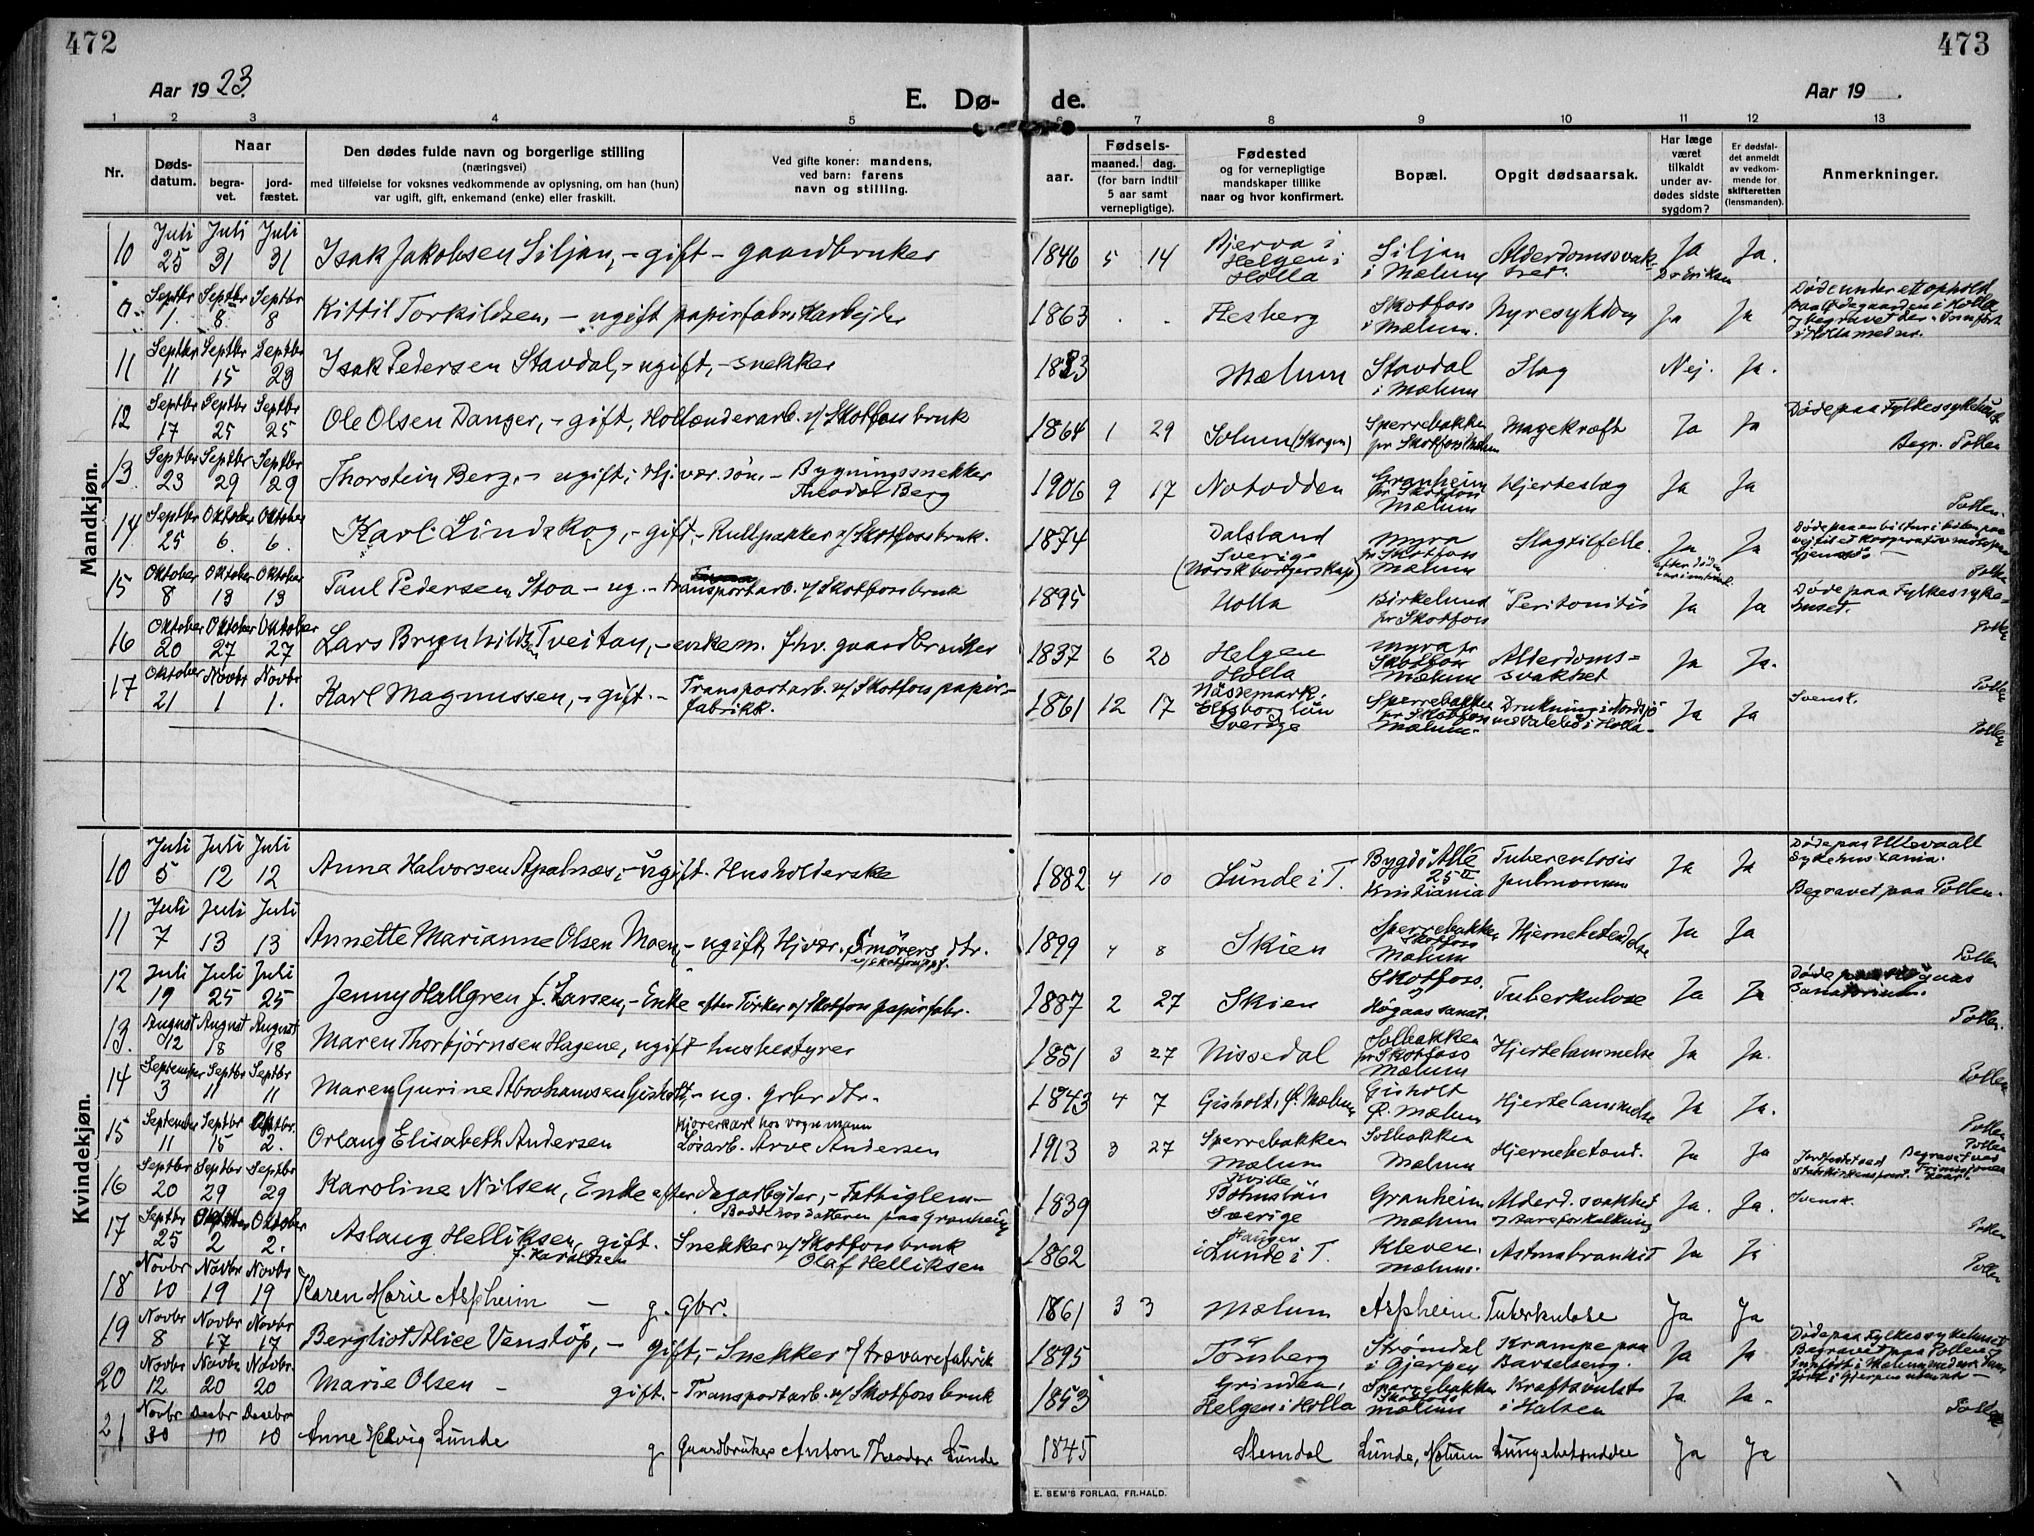 472
473
Aar 1923.
E. Dø- de.
Aar 19 .
1 2 3 4 5 6 7 8 9 10 11 12 13
Nr.
Døds-
datum.
Naar
begra-
vet.
jord-
fæstet.
Den dødes fulde navn og borgerlige stilling
(næringsvei)
med tilføielse for voksnes vedkommende av oplysning, om han (hun)
var ugift, gift, enkemand (enke) eller fraskilt.
Ved gifte koner: mandens,
ved barn: farens
navn og stilling.
aar.
Fødsels-
maaned. dag.
(for barn indtil
5 aar samt
vernepligtige).
Fødested
og for vernepligtige
mandskaper tillike
naar og hvor konfirmert.
Bopæl.
Opgit dødsaarsak.
Har læge
været
tilkaldt
under av-
dødes sidste
sygdom?
Er dødsfal-
det anmeldt
av vedkom-
mende for
skifteretten
(lensmanden).
Anmerkninger.
Mandkjøn.
10 Juli 25 Juli 31 Juli 31 Isak Jakobsen Siljan, - gift - gaardbruker 1846 5 14 Bjerva i Helgen i Holla Siljan i Mælum Alderdomssvak-het. Ja Ja.
0. Septbr 1. Septbr 8. Septbr 8 Kittil Torkildsen, - ugift papirfabrikarbejder 1863 . . Hesberg Skotfoss i Mælum. Nyresykdom Ja Ja Døde under et ophold paa Ødegaarden i Holla og begravet der. Innført i Holla med nr.
11 Septbr 11 Septbr 15 Septbr 29 Isak Pedersen Stavdal, - ugift, - snekker 1883 Mælum Stavdal i Mælum Slag Nej. Ja.
12 Septbr 17 Septbr 25 Septbr 25 Ole Olsen Danger, - gift, Hollænderarb. v/ Skotfoss bruk 1864 1 29 Solum (Skogen) Sperrebakken pr Skotfoss Mælum Mavekræft Ja Ja Døde paa Fylkessykehuset. Begr. Pollen
13. Septbr 23 Septbr 29 Septbr 29 Thorstein Berg, - ugift; Hj. vær. søn. - Bygningssnekker Theodor Berg 1906 9 17 Notodden Granheim pr Skotfoss Mælum Hjerteslag Ja Ja Pollen.
14 Septbr 25 Oktober 6. Oktober 6. Karl Lindskog, - gift - Rullpakker v/ Skotfoss bruk. 1874 Dalsland Sverige (Norsk borgerskap) Myra pr Skotfoss Mælum Slagtilfelle Ja Ja Pollen
15 Oktober 8 Oktober 13 Oktober 13 Paul Pedersen Stoa - ug. - Transportarb. v/ Skotfoss bruk 1895 Holla Birkelund pr Skotfoss Peritonitis Ja Ja Døde paa Fylkessyke-huset. Pollen
16 Oktober 20 Oktober 27 Oktober 27 Lars Brynhildsen Tveitan, - enkem. fhv. gaardbruker 1837 6 20 Helgen Holla Myra pr Skotfoss Mælum Alderdoms-svakhet Ja Ja. Pollen
17 Oktober 21 Novbr 1 Novbr 1. Karl Magnussen, - gift. - Transportarb. v/ Skotfoss papir-fabrikk. 1861 12 17 Nössemark, Elfsborg län Sverige Sperrebakken pr Skotfoss Mælum. Drukning i Nordsjö ved Valebø i Holla. Ja Ja Svensk. Pollen
Kvindekjøn.
10 Juli 5 Juli 12 Juli 12 Anna Halvorsen Apalnæs, - ugift. Husholderske 1882 4 10 Lunde i T. Bygdö Alle 25 II Kristiania Tuberculosis pulmonum Ja Ja Døde paa Ullevaall Sykehus Xania. Begravet paa Pollen.
11 Juli 7 Juli 13 Juli 13 Annette Marianne Olsen Moen, - ugift, Hj. vær. Smörers dtr. 1899 4 8 Skien Sperrebakken Skotfoss Mælum Hjernebetendelse Ja Ja Pollen
12 Juli 19 Juli 25 Juli 25 Jenny Hallgren f. Larsen, - Enke efter Törker v/ Skotfoss papirfabr. 1887 2 27 Skien Skotfoss. Høgaas sanat. Tuberkulose Ja Ja Døde Høgaas Sanatorium. Pollen.
13. August 12 August 18 August 18 Maren Thorbjørnsen Hagene, ugift husbestyrer 1851 3 27 Nissedal Solbakken pr Skotfoss Mælum Hjertelammelse Ja Ja. Pollen
14 September 3 Septbr 11 Septbr 11 Maren Gurine Abrahamsen Gisholt, - ug. grbr dtr. 1843 4 7 Gisholt, Ø. Mælum Gisholt Ø. Mælum Hjertelammelse Ja Ja. Pollen
15 September 11 Septbr 15 Oktbr. 2. Orlaug Elisabeth Andersen Kjørerkarl hos vognmann Løsarb. Arve Andersen 1913 3 27 Sperrebakken Mælum Solbakken Mælum Hjernebetend. Ja Ja Pollen
16 Septbr 20 Septbr 29 Septbr 29 Karoline Nilsen, Enke efter dagarbejder, - Fattiglem - Bodde hos datteren paa Granheim 1839 Bohuslän Sverige Granheim Mælum Alderd. svakhet og Aareforkalkning Ja. Ja. Svensk. Pollen
17 Septbr 25 Oktober 2 Oktober 2. Aslaug Helliksen, gift. Snekker v/ Skotfoss bruk Olaf Helliksen 1862 i Lunde i T. Kleven. Mælum. Astmabronkit Ja Ja Pollen
18 Novbr 10 Novbr 19 Novbr 19 Karen Marie Aspheim - g. Gbr. 1861 3 3 Mælum Aspheim Tuberkulose Ja Ja
19 Novbr 8 Novbr 17 Novbr 17 Bergliot Alice Venstöp, - gift, - Snekker v/ trævarefabrik 1895 Tönsberg Strømdal i Gjerpen Krampe paa Barselseng. Ja Ja Døde paa Fylkessykehuset Begravet paa Pollen
20 Novbr 12 Novbr 20 Novbr. 20 Marie Olsen - gift. - Transportarb. v/ Skotfoss bruk 1853 Grinden, Helgen i Holla Sperrebakken Skotfoss Mælum Kraftsvulst i Halsen Ja Ja. Pollen
21 Novbr 30 Decbr 10 Decebr 10 Anne Helvig Lunde g Gaardbruker Anton Theodor Lunde 1845 Slemdal Lunde, Mælum Lungebetændelse Ja Ja
E. SEM'S FORLAG, FR.HALD.